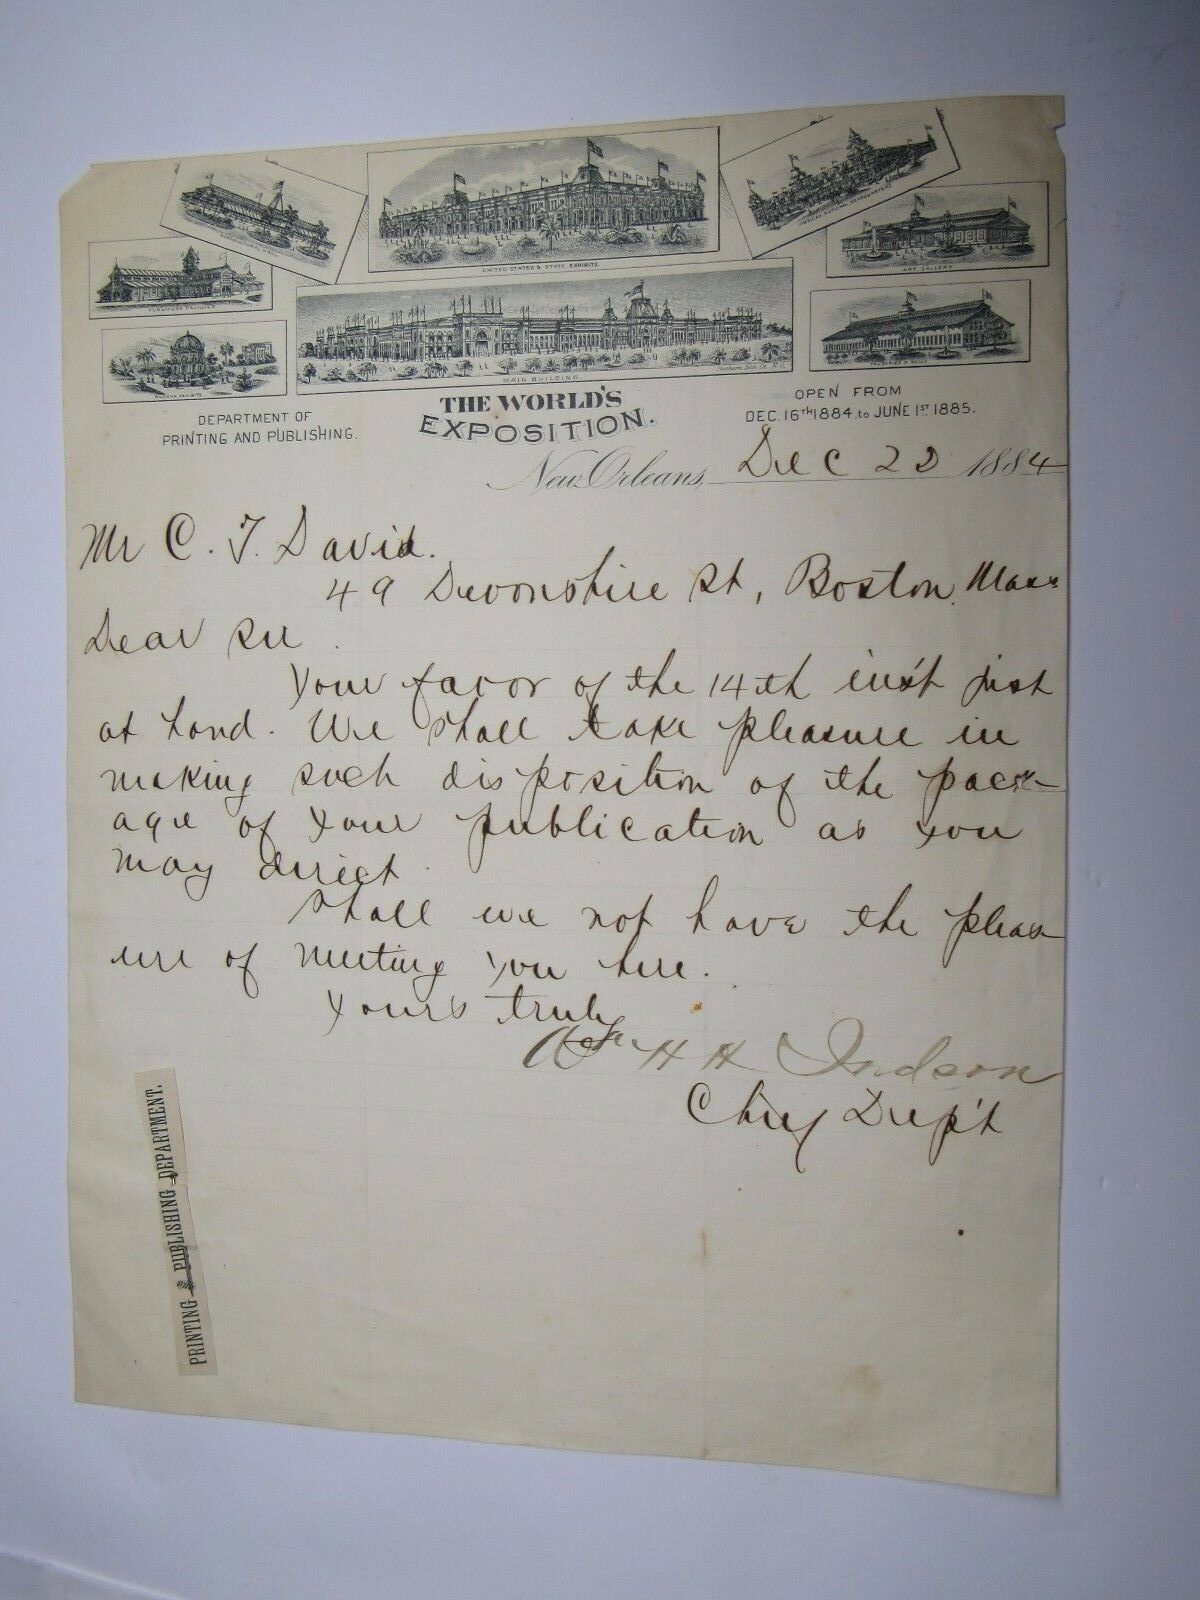 UNITED STATES & STATE EXHIBITS.
ART GALLERY
MAIN BUILDING
DEPARTMENT OF
PRINTING AND PUBLISHING.
THE WORLD'S
EXPOSITION.
OPEN FROM
DEC. 16TH 1884, to JUNE 1ST 1885.
New Orleans, Dec 22 1884
Mr C. F. David.
49 Devonshire St, Boston, Mass
Dear Sir.
Your favor of the 14th inst just
at hand. We shall take pleasure in
making such disposition of the pack-
age of your publication as you
may direct.
Shall we not have the pleas
ure of meeting you here.
Yours truly
H H
Chief Dep't
PRINTING PUBLISHING DEPARTMENT.